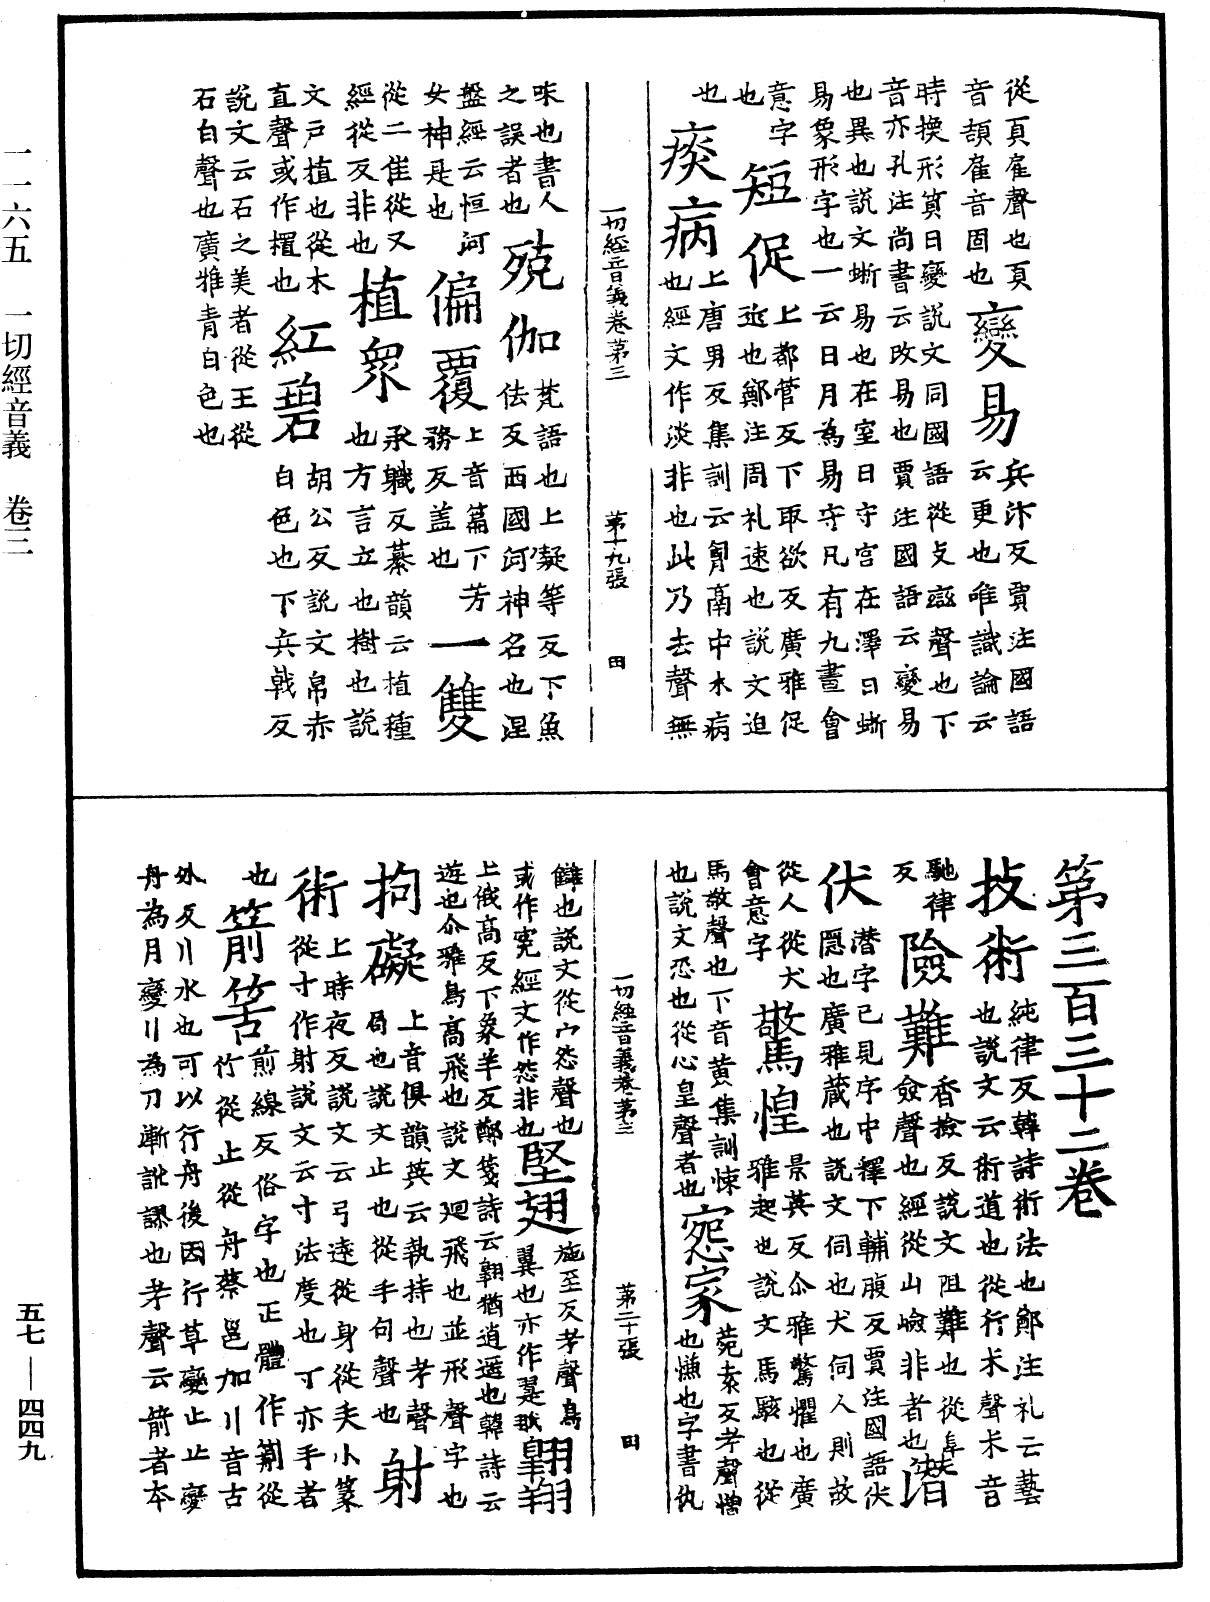 從頁雇聲也頁
音頡雇音固也
變易
兵汴反賈注國語
云更也唯識論云
時換形質曰變說文同國語從攴䜌聲也下
音亦孔注尚書云改易也賈注國語云變易
也異也說文蜥易也在室曰守宮在澤曰蜥
易象形字也一云日月為易守凡有九畫會
意字
也
短促
上都管反下取欲反廣雅促
近也鄭注周礼速也說文迫
也
痰病
上唐男反集訓云胷鬲中水病
也經文作淡非也此乃去聲無
一切經音義卷第三 第十九張 田
味也書人
之誤者也
殑伽
梵語也上凝等反下魚
佉反西國河神名也涅
盤經云恒河
女神是也
偏覆
上音篇下芳
務反盖也
一雙
從二隹從又
經從反非也
植眾
承軄反蓁韻云植種
也方言立也樹也說
文戶植也從木
直聲或作㯰也
紅碧
胡公反說文帛赤
白色也下兵戟反
說文云石之美者從王從
石白聲也廣雅青白色也
第三百三十二卷
技術
純律反韓詩術法也鄭注礼云藝
也說文云術道也從行朮聲朮音
馳律
反
險難
香撿反說文阻難也從𨸏
僉聲也經從山嶮非者也
潛
伏
潛字已見字中釋下輔腹反賈注國語伏
隱也廣雅蔵也說文伺也犬伺人則故
從人從犬
會意字
驚惶
景英反尒雅驚懼也廣
雅起也說文馬駭也從
馬敬聲也下音黃集訓悚
也說文恐也從心皇聲者也
寃家
菀袁反考聲憎
也慊也字書仇
一切經音義卷第三 第二十張 田
讎也說文從宀怨聲也
或作寃經文作怨非也
堅翅
施至反考聲鳥
翼也亦作翨𦐊
翺翔
上俄高反下象羊反鄭箋詩云翺猶逍遥也韓詩云
遊也尒雅鳥高飛也說文廻飛也並形聲字也
拘礙
上音俱韻英云執持也考聲
局也說文止也從手句聲也
射
術
上時夜反說文云弓遠從身從矢小篆
從寸作射說文云寸法度也寸亦手者
也
箭筈
煎線反俗字也正體作𥳊從
竹從止從舟蔡邕加刂音古
外反刂水也可以行舟後因行草變止止變
舟為月變刂為刀漸訛謬也考聲云箭者本
一一六五 一切經音義 卷三
五七—四四九